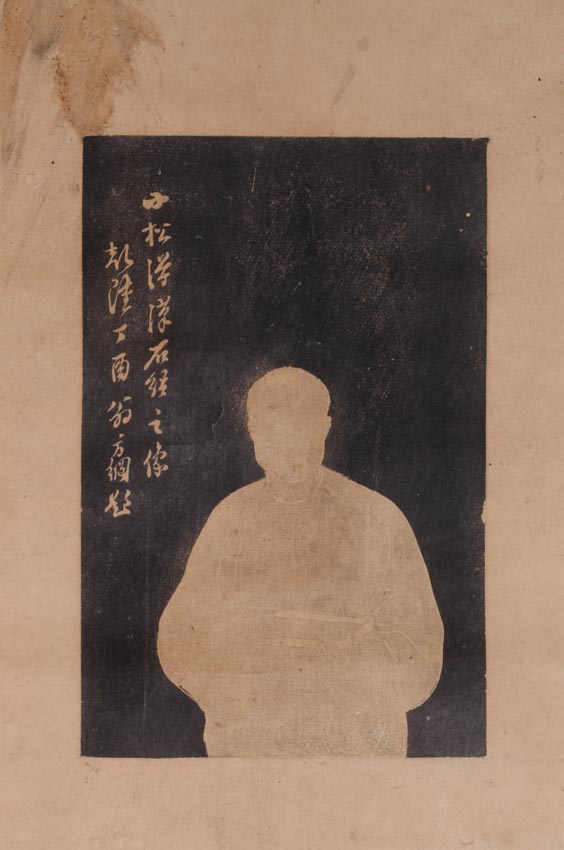 小松得漢石經之像
乾隆丁酉翁方綱題